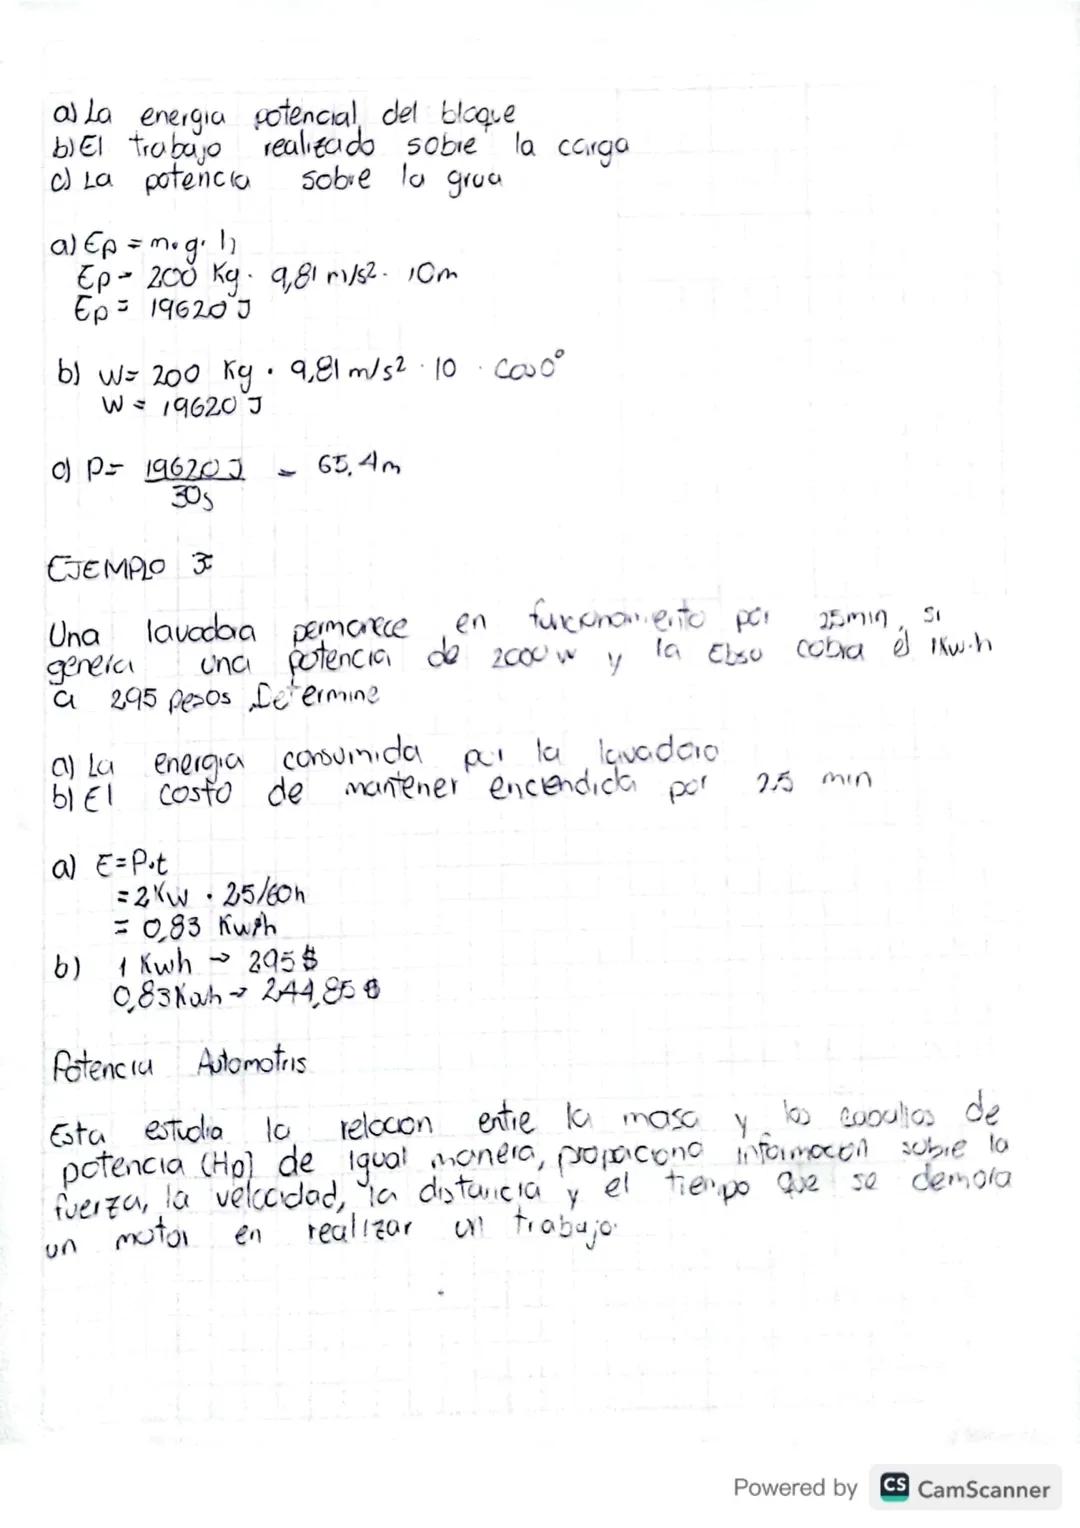 a) La energia potencial del bloque
b) El trabajo realizado sobre la carga
c) La potencia sobre la grua
a) Ep = m.g. h
Ep = 200 Kg . 9,81 m/s2 . 10m
Ep = 19620 J
b) W= 200 Kg . 9,81 m/s2 . 10 . Cos 0°
W = 19620 J
c) P= 19620 J = 65,4m
30s
EJEMPLO 3:
Una lavadora permanece en funcionamiento por 25min, si
genera una potencia de 2000 w y la Ebsa cobra el 1Kw.h
a 295 pesos Determine
a) La energia consumida por la lavadora
b) El costo de mantener encendida por 25 min
a) E=P.t
=2Kw . 25/60h
= 0,83 Kwh
b) 1 Kwh → 295$
0,83Kwh → 244,85 $
Potencia Automotris
Esta estudia la relacion entre la masa y los caballos de
potencia (Hp) de igual manera, proporciona informacion sobre la
fuerza, la velocidad, la distancia y el tiempo que se demora
un motor en realizar un trabajo.
Powered by CS CamScanner